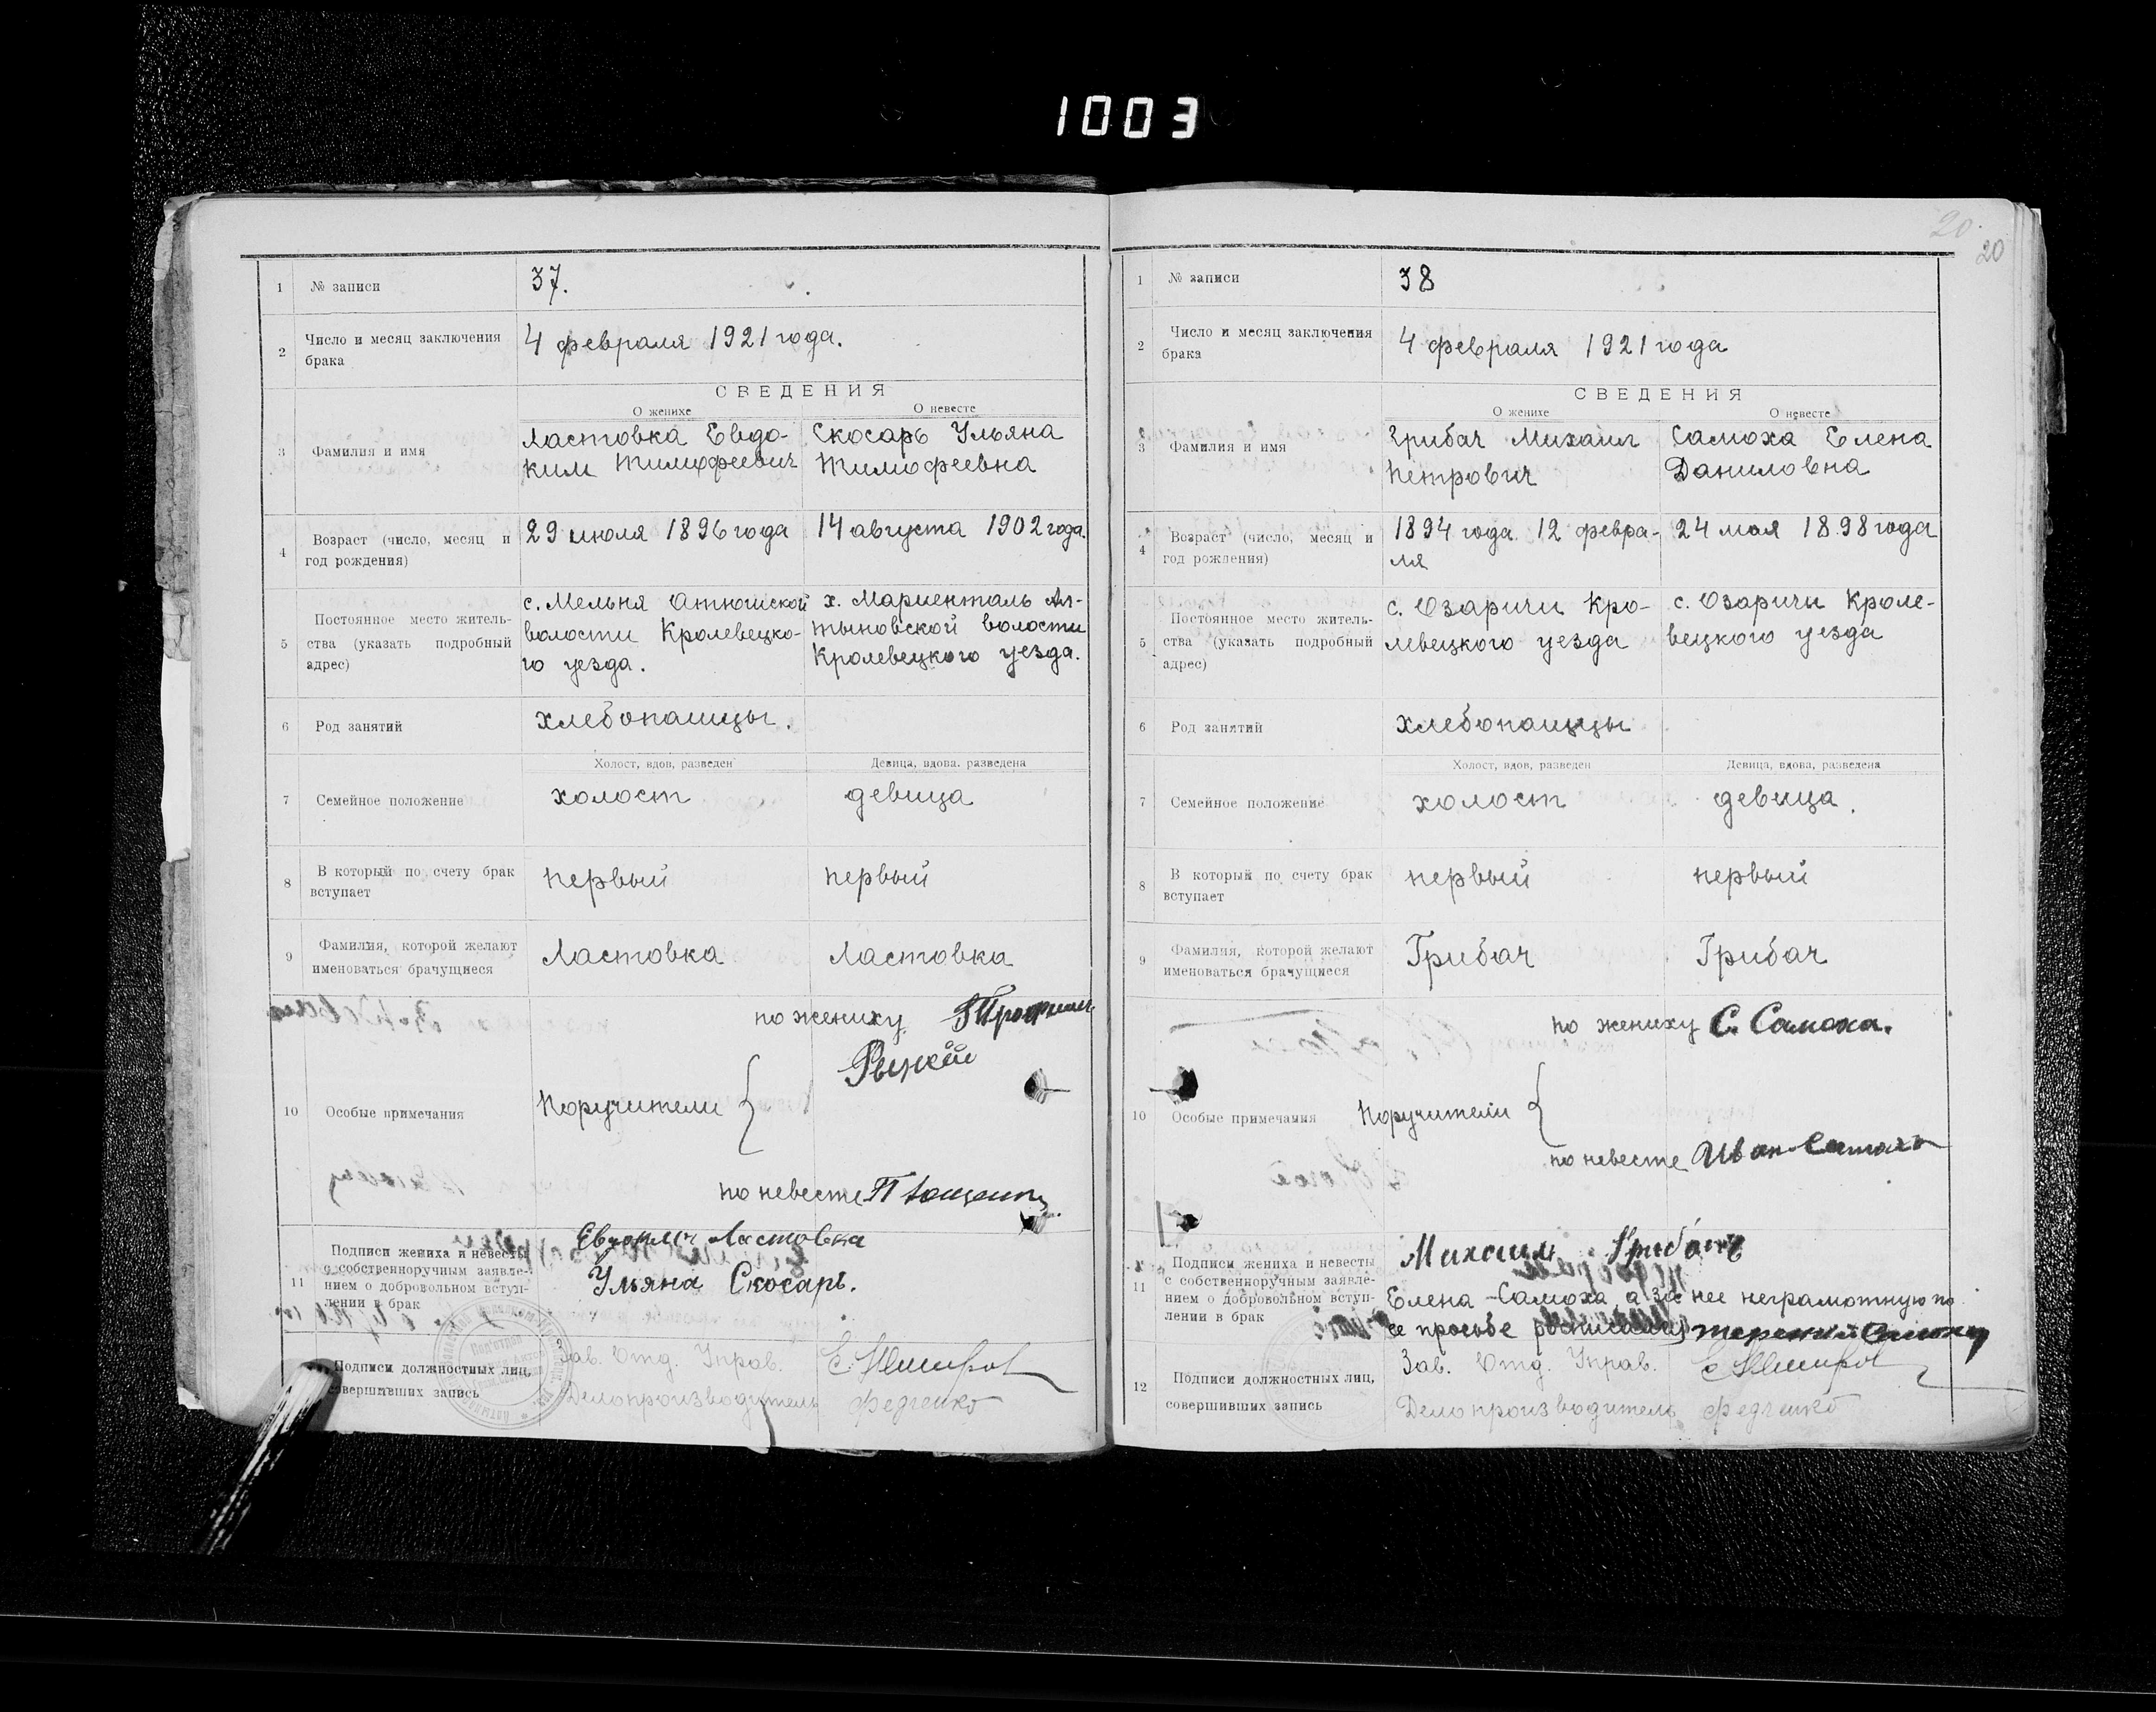 1003
20.
20
1 № записи 37.
2 Число и месяц заключения
брака
4 февраля 1921 года.
СВЕДЕНИЯ
О женихе О невесте
3 Фамилия и имя
Ластовка Евдо-
ким Тимофеевич
Скосарь Ульяна
Тимофеевна
4 Возраст (число, месяц и
год рождения)
29 июля 1896 года
14 августа 1902 года.
5 Постоянное место житель-
ства (указать подробный
адрес)
с. Мельня Атюшской
волости Кролевецко-
го уезда.
х. Мариенталь Ал-
тыновской волости
Кролевецкого уезда.
6 Род занятий
хлебопашцы.
Холост, вдов, разведен Девица, вдова. разведена
7 Семейное положение
холост девица
8 В который по счету брак
вступает
первый первый
9 Фамилия, которой желают
именоваться брачущиеся
Ластовка Ластовка
10 Особые примечания
по жениху
Поручители
по невесте
11 Подписи жениха и невесты
с собственноручным заявле-
нием о добровольном вступ-
лении в брак
Ластовка
Ульяна Скосарь.
Подписи должностных лиц,
совершивших запись
Зав. Отд. Управ.
Делопроизводитель Федченко
1 № записи 38
2 Число и месяц заключения
брака
4 февраля 1921 года
СВЕДЕНИЯ
О женихе О невесте
3 Фамилия и имя
Грибач Михаил
Петрович
Самоха Елена
Даниловна
4 Возраст (число, месяц и
год рождения)
1894 года 12 февра-
ля
24 мая 1898 года
5 Постоянное место житель-
ства (указать подробный
адрес)
с. Озаричи Кро-
левецкого уезда
с. Озаричи Кроле-
вецкого уезда
6 Род занятий
хлебопашцы
Холост, вдов, разведен Девица, вдова, разведена
7 Семейное положение
холост девица.
8 В который по счету брак
вступает
первый первый
9 Фамилия, которой желают
именоваться брачущиеся
Грибач Грибач
10 Особые примечания
по жениху С. Самоха.
Поручители
по невесте Иван Самоха
11 Подписи жениха и невесты
с собственноручным заявле-
нием о добровольном вступ-
лении в брак
Михаил
Елена Самоха, а за нее неграмотную по
ее просьбе
12 Подписи должностных лиц,
совершивших запись
Зав. Отд. Управ.
Делопроизводитель Федченко